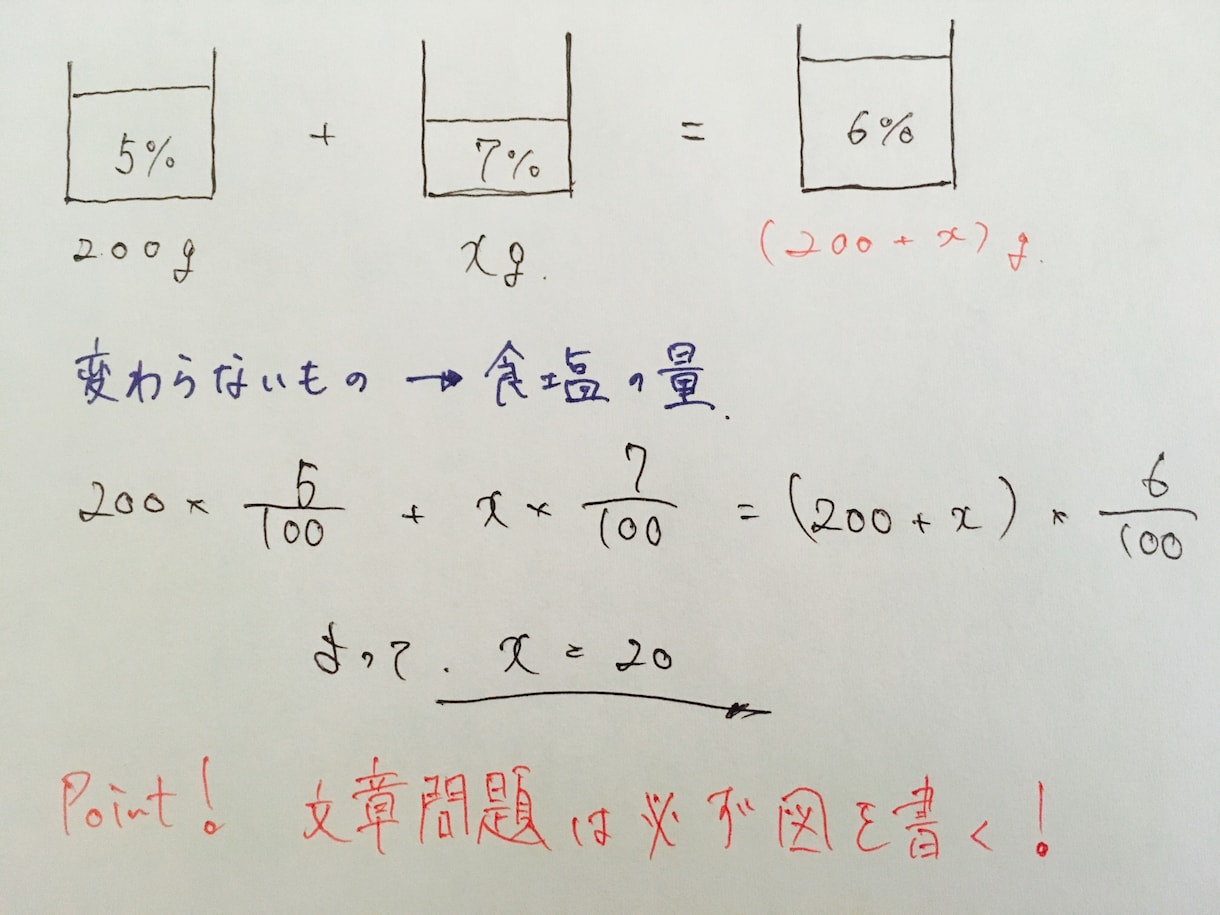 5% + 7% = 6%
200g xg. (200+x)g.
変わらないもの → 食塩の量.
200 × 5/100 + x × 7/100 = (200 + x) × 6/100
よって. x = 20
Point! 文章問題は必ず図を書く!